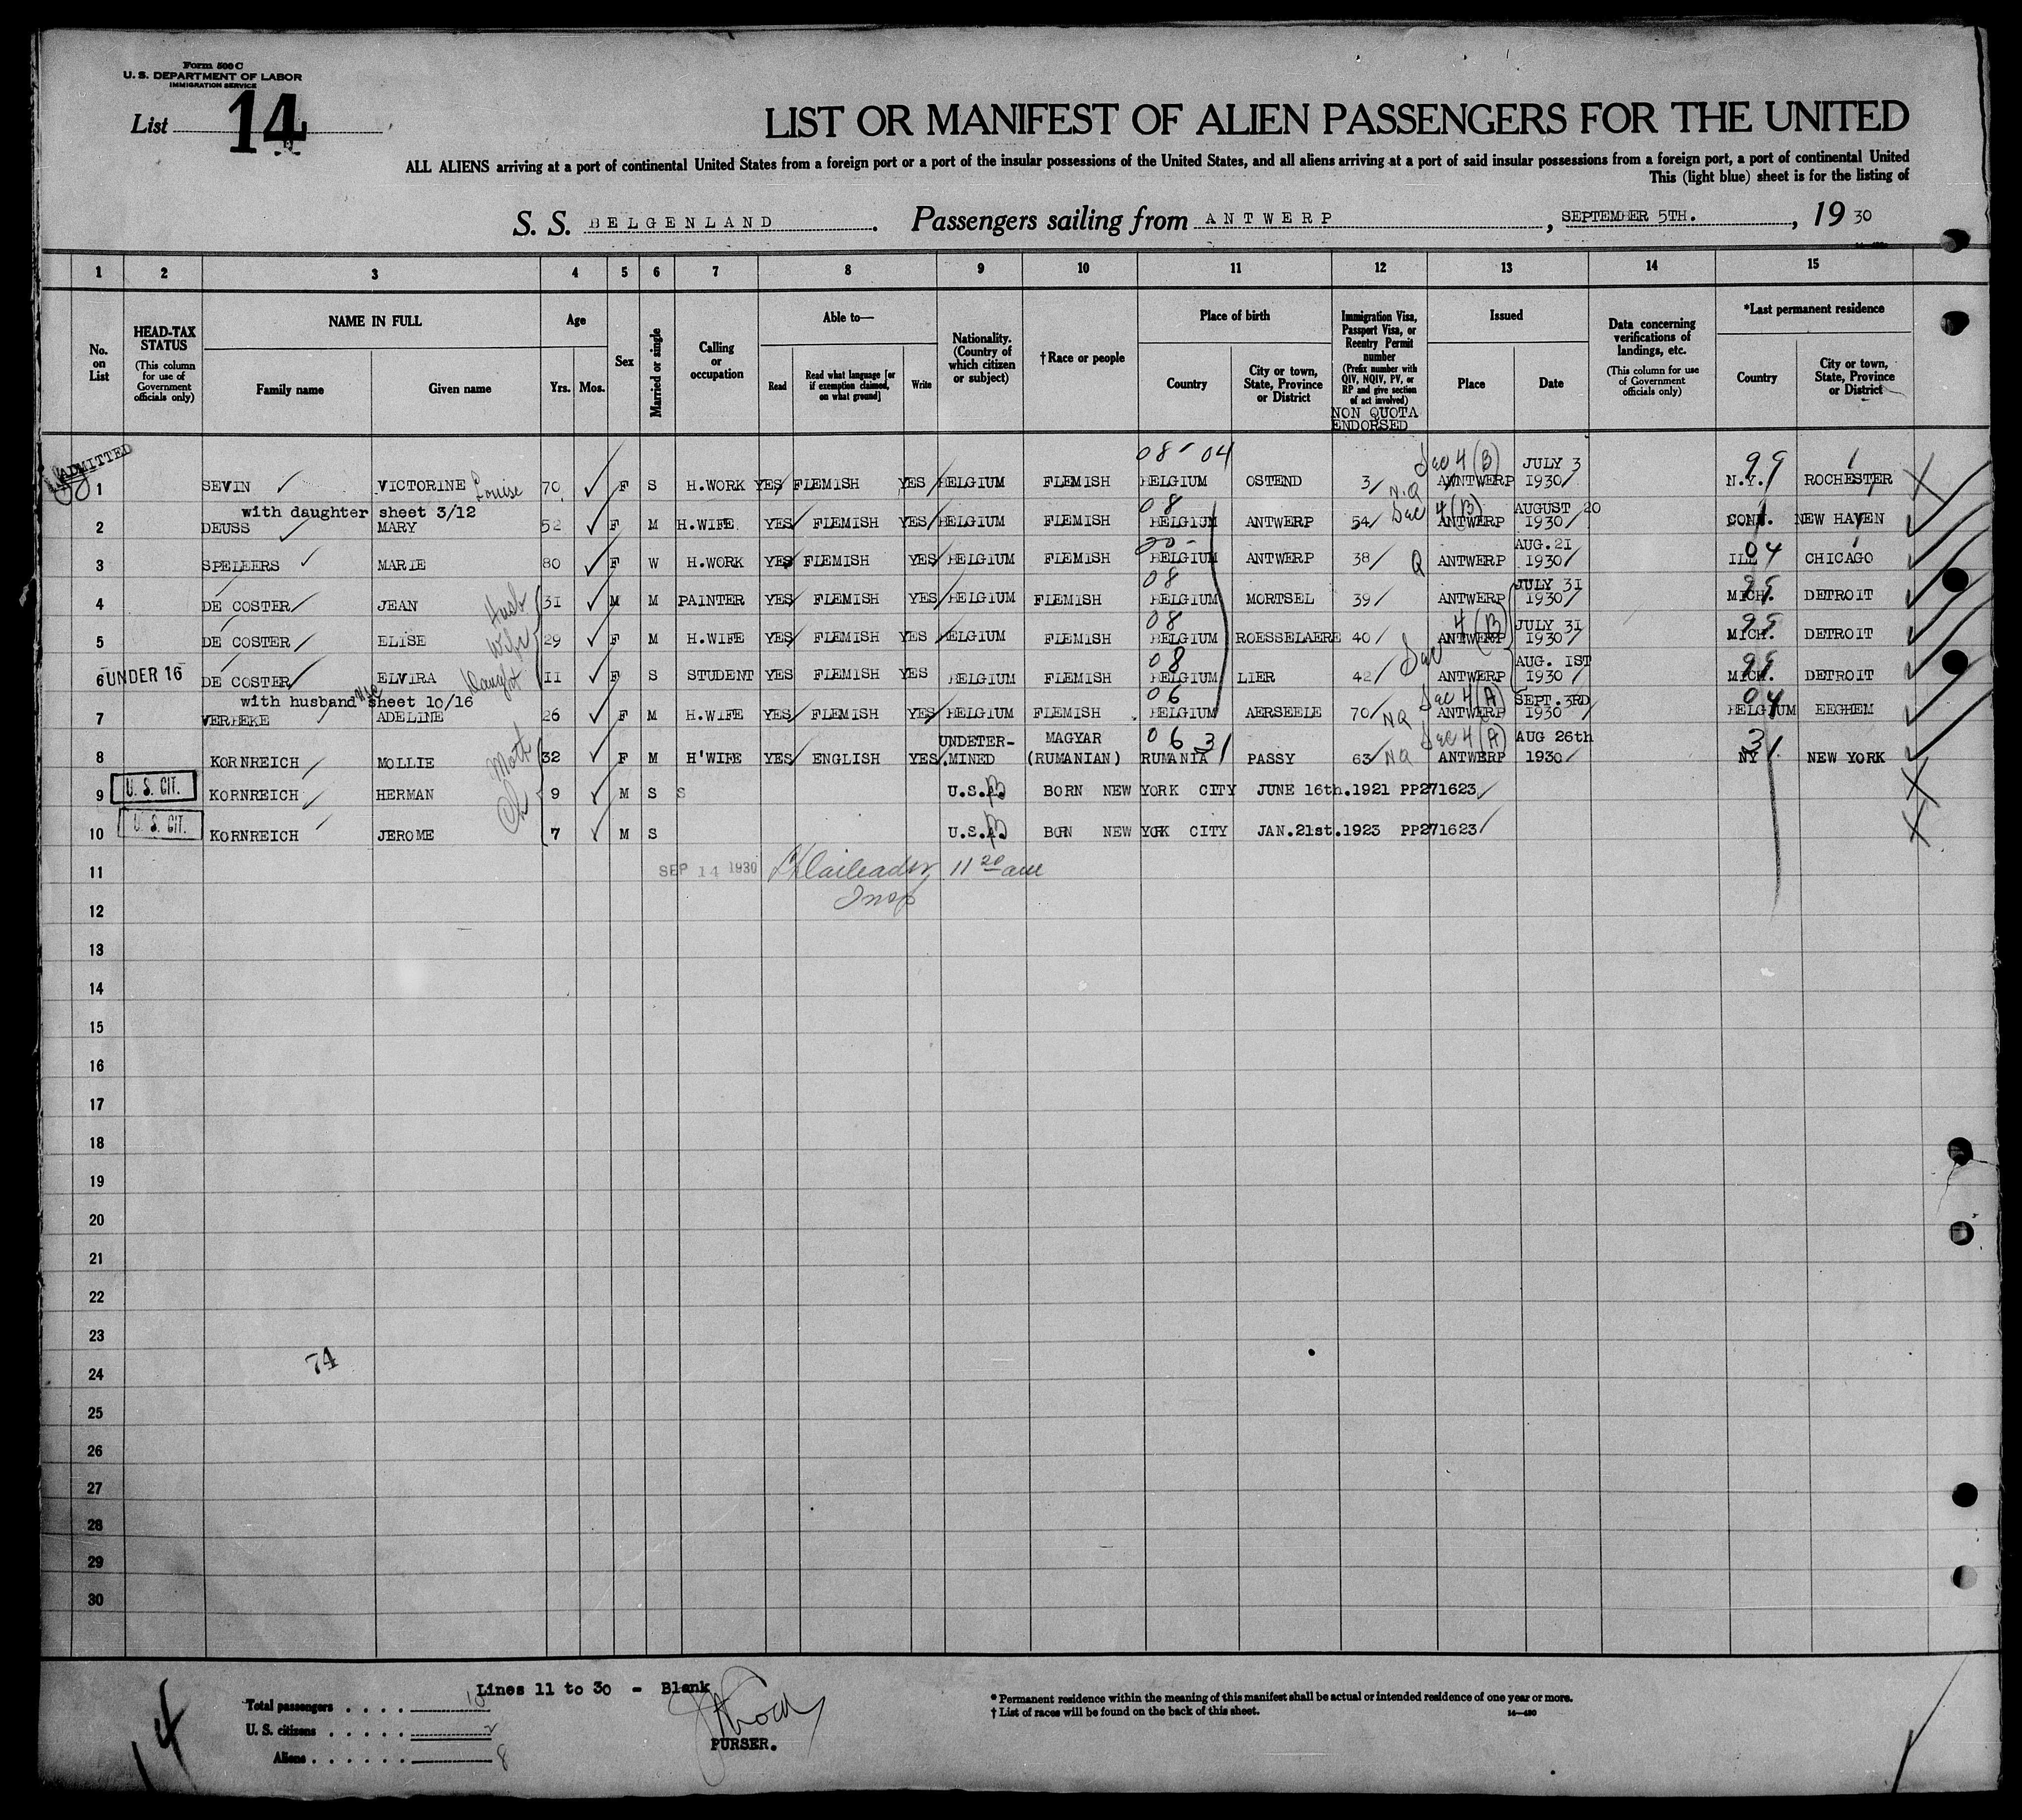 Form 500 C
U. S. DEPARTMENT OF LABOR
IMMIGRATION SERVICE
List 14
LIST OR MANIFEST OF ALIEN PASSENGERS FOR THE UNITED
ALL ALIENS arriving at a port of continental United States from a foreign port or a port of the insular possessions of the United States, and all aliens arriving at a port of said insular possessions from a foreign port, a port of continental United
This (light blue) sheet is for the listing of
S. S. BELGENLAND. Passengers sailing from ANTWERP, SEPTEMBER 5TH., 19 30
1 2 3 4 5 6 7 8 9 10 11 12 13 14 15
No. on List
HEAD-TAX STATUS
(This column for use of Government officials only)
NAME IN FULL
Family name Given name
Age
Yrs. Mos.
Sex
Married or single
Calling or occupation
Able to—
Read
Read what language [or if exemption claimed, on what ground]
Write
Nationality. (Country of which citizen or subject)
†Race or people
Place of birth
Country
City or town, State, Province or District
Immigration Visa, Passport Visa, or Reentry Permit number
(Prefix number with QIV, NQIV, PV, or RP and give section of act involved)
NON QUOTA
ENDORSED
Issued
Place Date
Data concerning verifications of landings, etc.
(This column for use of Government officials only)
*Last permanent residence
Country
City or town, State, Province or District
ADMITTED
08 - 04 Sec 4 (B) JULY 3 99
1 SEVIN VICTORINE Louise 70 F S H.WORK YES FLEMISH YES BELGIUM FLEMISH BELGIUM OSTEND 3 N.Q ANTWERP 1930 N.Y. ROCHESTER
with daughter sheet 3/12 08 Sec 4 (B) AUGUST 20
2 DEUSS MARY 52 F M H.WIFE YES FLEMISH YES BELGIUM FLEMISH BELGIUM ANTWERP 54 ANTWERP 1930 CONN. NEW HAVEN
20 - AUG.21 04
3 SPELLERS MARIE 80 F W H.WORK YES FLEMISH YES BELGIUM FLEMISH BELGIUM ANTWERP 38 Q ANTWERP 1930 ILL CHICAGO
08 JULY 31
4 DE COSTER JEAN Husb 31 M M PAINTER YES FLEMISH YES BELGIUM FLEMISH BELGIUM MORTSEL 39 ANTWERP 1930 MICH. DETROIT
08 4 (B) JULY 31
5 DE COSTER ELISE Wife 29 F M H.WIFE YES FLEMISH YES BELGIUM FLEMISH BELGIUM ROESSELAERE 40 Sec ANTWERP 1930 MICH. DETROIT
08 AUG. 1ST
6 UNDER 16 DE COSTER ELVIRA Daught 11 F S STUDENT YES FLEMISH YES BELGIUM FLEMISH BELGIUM LIER 42 ANTWERP 1930 MICH. DETROIT
with husband sheet 10/16 06 Sec 4 (A) SEPT.3RD 04
7 VERBEKE ADELINE 26 F M H.WIFE YES FLEMISH YES BELGIUM FLEMISH BELGIUM AERSEELE 70 NQ ANTWERP 1930 BELGIUM EEGHEM
UNDETER- MAGYAR 06 31 Sec 4 (A) AUG 26th 31
8 KORNREICH MOLLIE Moth 32 F M H'WIFE YES ENGLISH YES MINED (RUMANIAN) RUMANIA PASSY 63 NQ ANTWERP 1930 NY NEW YORK
9 U. S. CIT. KORNREICH HERMAN Ch 9 M S S U.S.A. BORN NEW YORK CITY JUNE 16th.1921 PP271623
10 U. S. CIT. KORNREICH JEROME 7 M S U.S.A. BORN NEW YORK CITY JAN.21st.1923 PP271623
11 SEP 14 1930 11 20 am
12 Insp
13
14
15
16
17
18
19
20
21
22
23
74
24
25
26
27
28
29
30
Lines 11 to 30 - Blank
Total passengers . . . . 10
U. S. citizens . . . . . 2
Aliens . . . . . . 8
PURSER.
* Permanent residence within the meaning of this manifest shall be actual or intended residence of one year or more.
† List of races will be found on the back of this sheet.
14—490
14